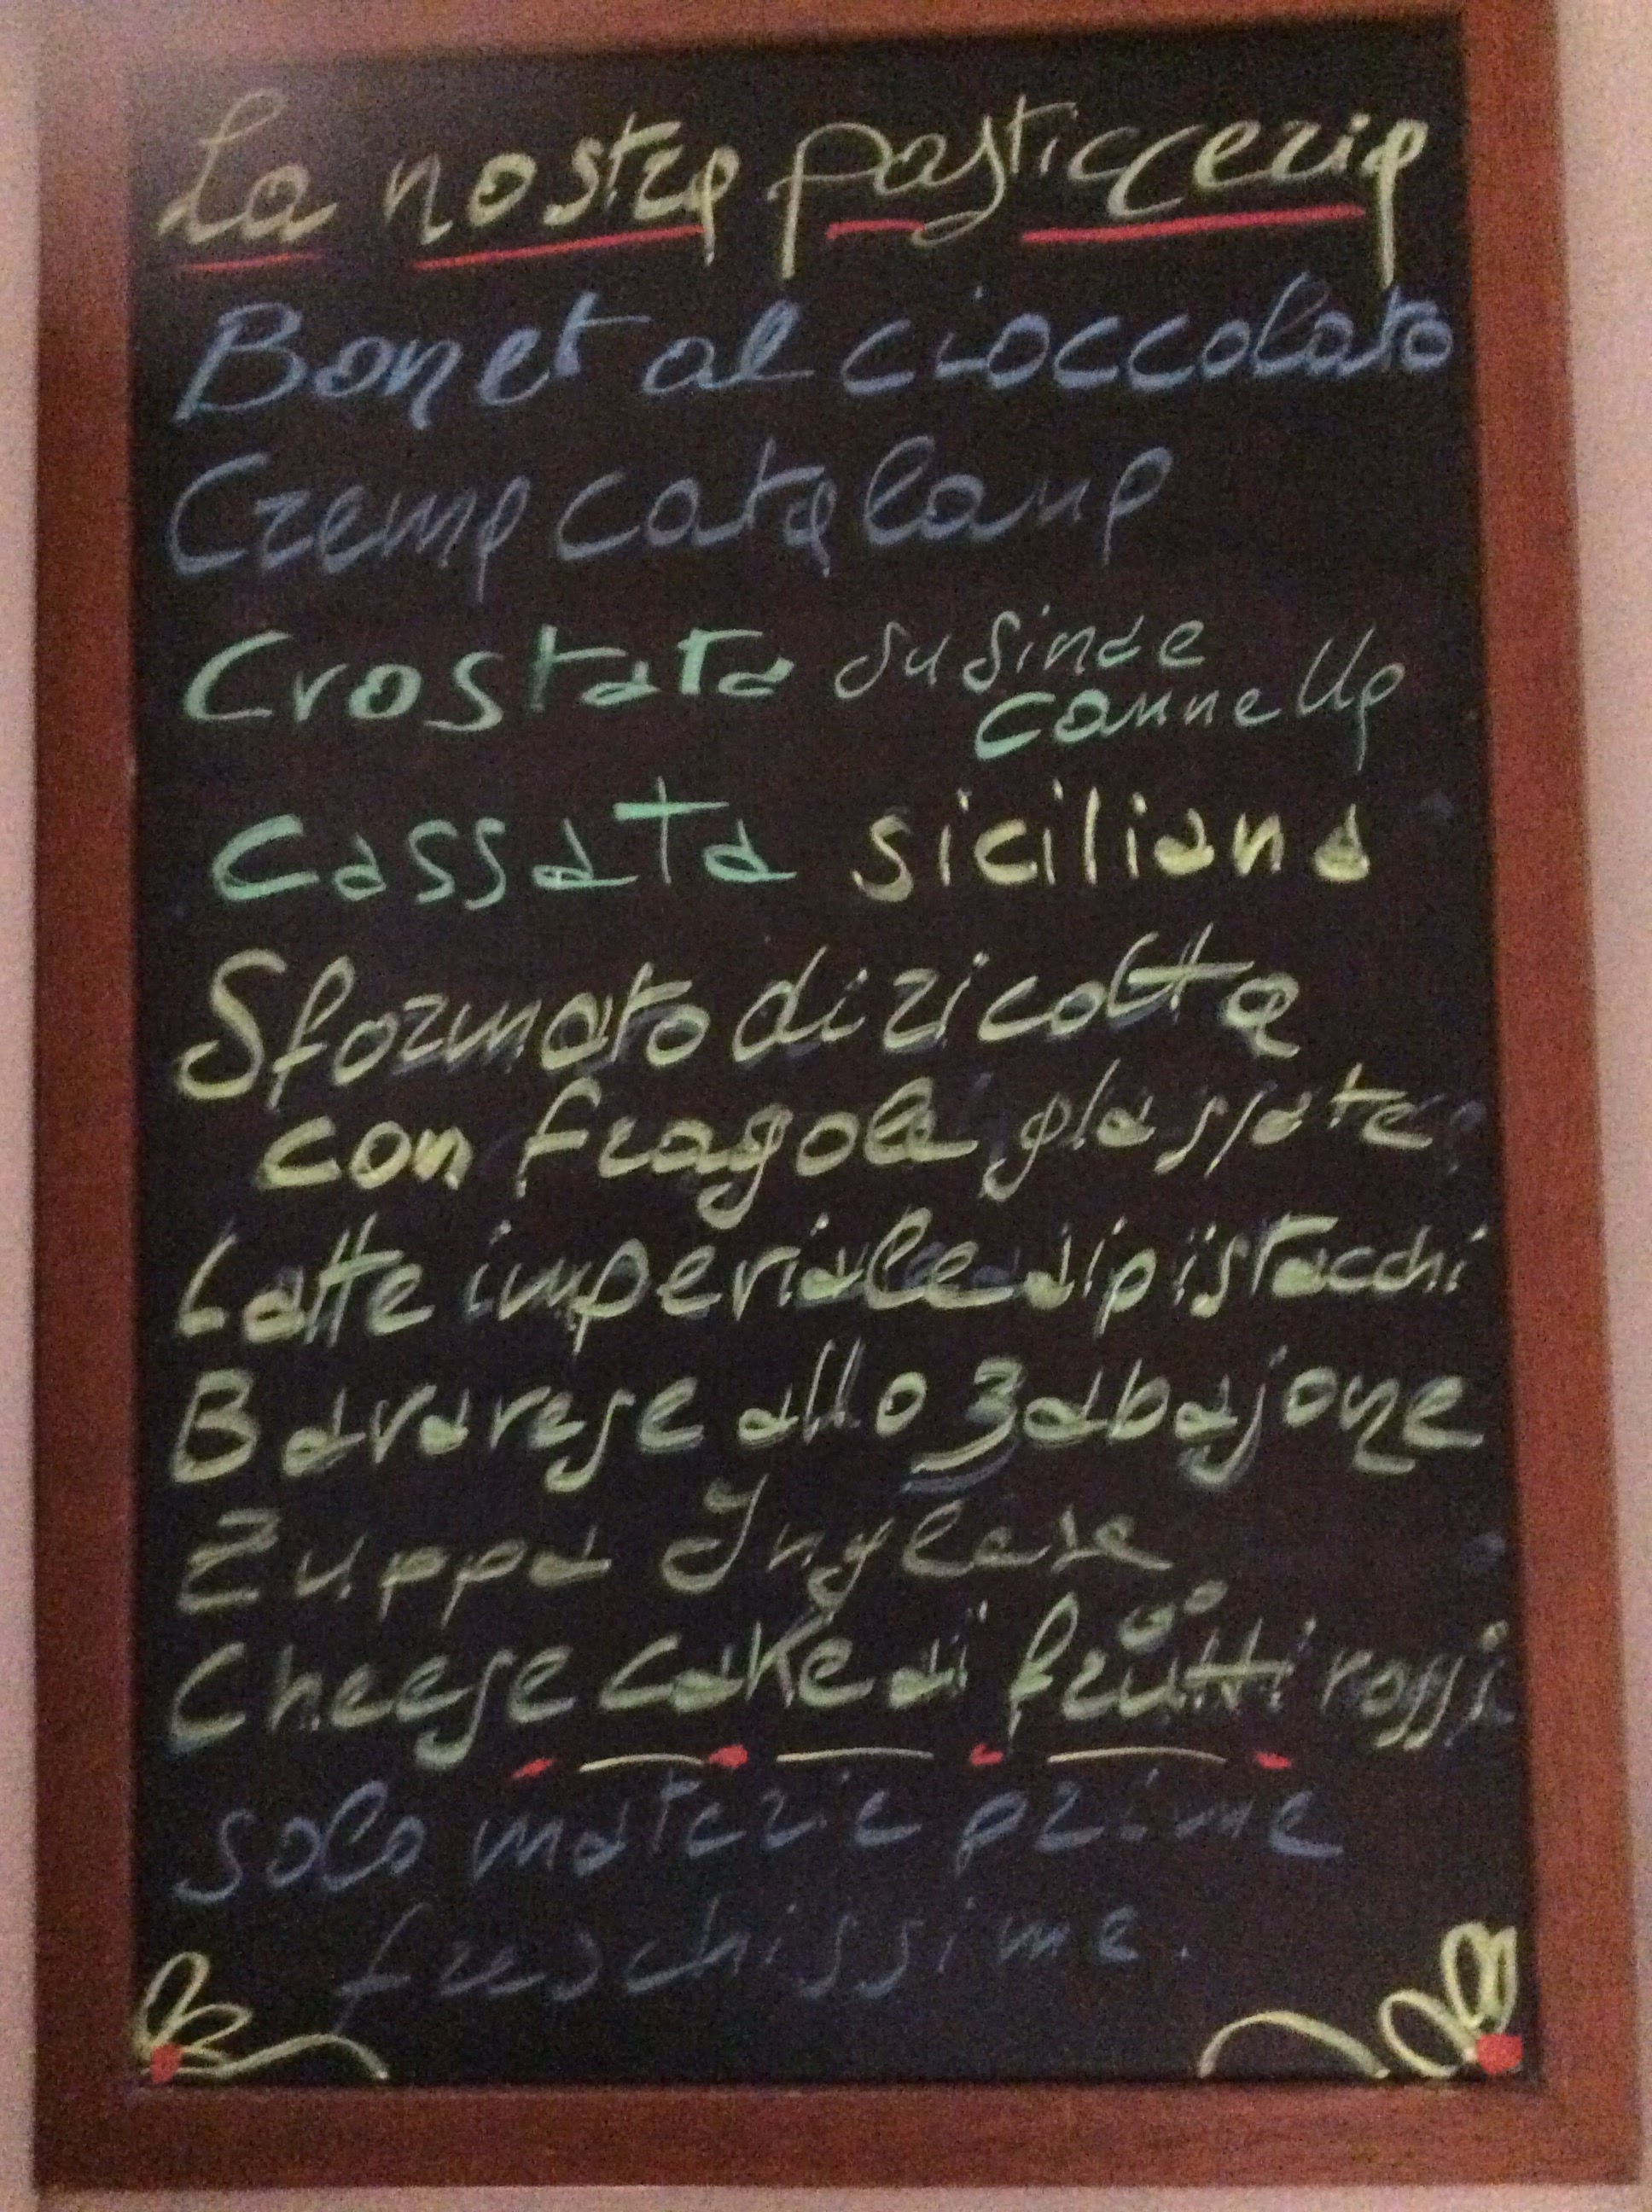 La nostra pasticceria
Bonet al cioccolato
Crema catalana
Crostata susinae
cannella
Cassata siciliana
Sformato di ricotta
con fragole glassate
Latte imperiale di pistacchi
Bavarese allo zabajone
Zuppa Inglese
Cheese cake di frutti rossi
solo materie prime
freschissime.